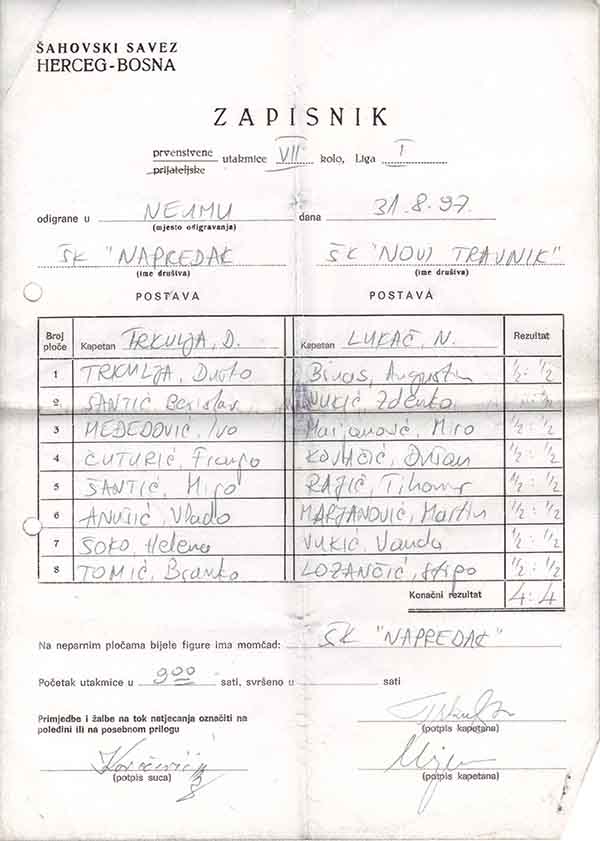 ŠAHOVSKI SAVEZ
HERCEG-BOSNA
ZAPISNIK
prvenstvene utakmice VII kolo, Liga I
prijateljske
odigrane u NEUMU dana 31.8.97.
(mjesto odigravanja)
ŠK "NAPREDAK ŠK "NOVI TRAVNIK"
(ime društva) (ime društva)
POSTAVA POSTAVA
Broj ploče Kapetan TRKULJA, D. Kapetan LUKAČ, N. Rezultat
1 TRKULJA, Duško Binas, Augustin 1/2 : 1/2
2 ŠANTIĆ Berislav VUKIĆ Zdenko 1/2 : 1/2
3 MEĐEDOVIĆ, Ivo Marjanović Miro 1/2 : 1/2
4 ČUTURIĆ, Franjo KOVAČIĆ, Dušan 1/2 : 1/2
5 ŠANTIĆ, Miro RAJIĆ, Tihomir 1/2 : 1/2
6 ANUŠIĆ, Vlado MARJANOVIĆ, Martin 1/2 : 1/2
7 ŠOKO, Helena VUKIĆ, Vanda 1/2 : 1/2
8 TOMIĆ, Branko LOZANČIĆ, Stipo 1/2 : 1/2
Konačni rezultat 4:4
Na neparnim pločama bijele figure ima momčad: ŠK "NAPREDAK"
Početak utakmice u 9 00 sati, svršeno u sati
Primjedbe i žalbe na tok natjecanja označiti na
poledini ili na posebnom prilogu
Trkulja
(potpis kapetana)
(potpis suca) (potpis kapetana)